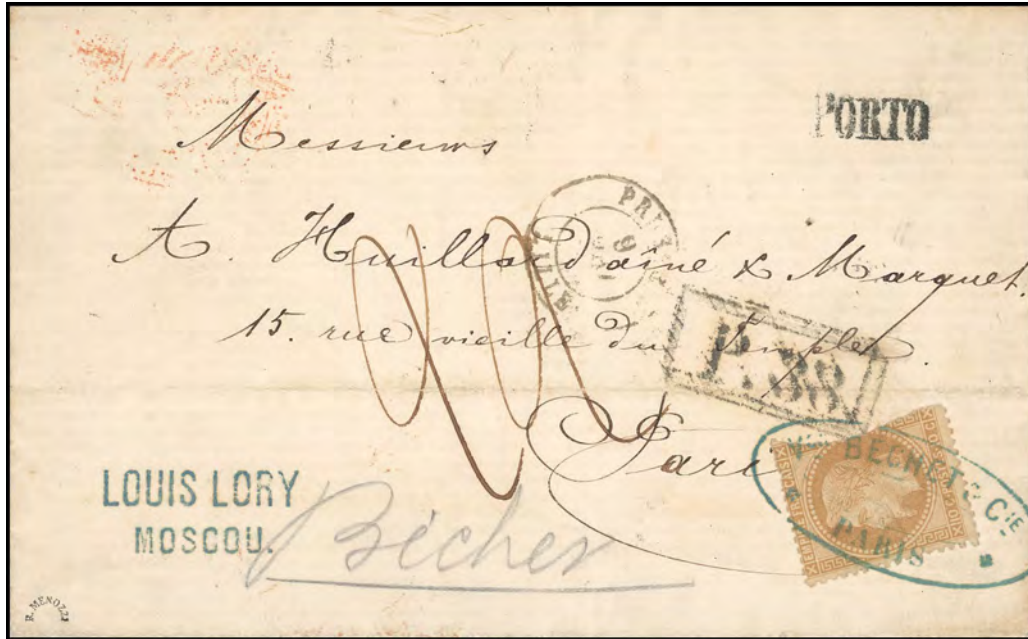 PORTO
Messieurs
A. Huillard ainé & Marquet.
15. rue vieille du Temple.
Paris
P. 38
LOUIS LORY
MOSCOU.
Bécher
BECHET & CIE
PARIS
R. MENOZZI